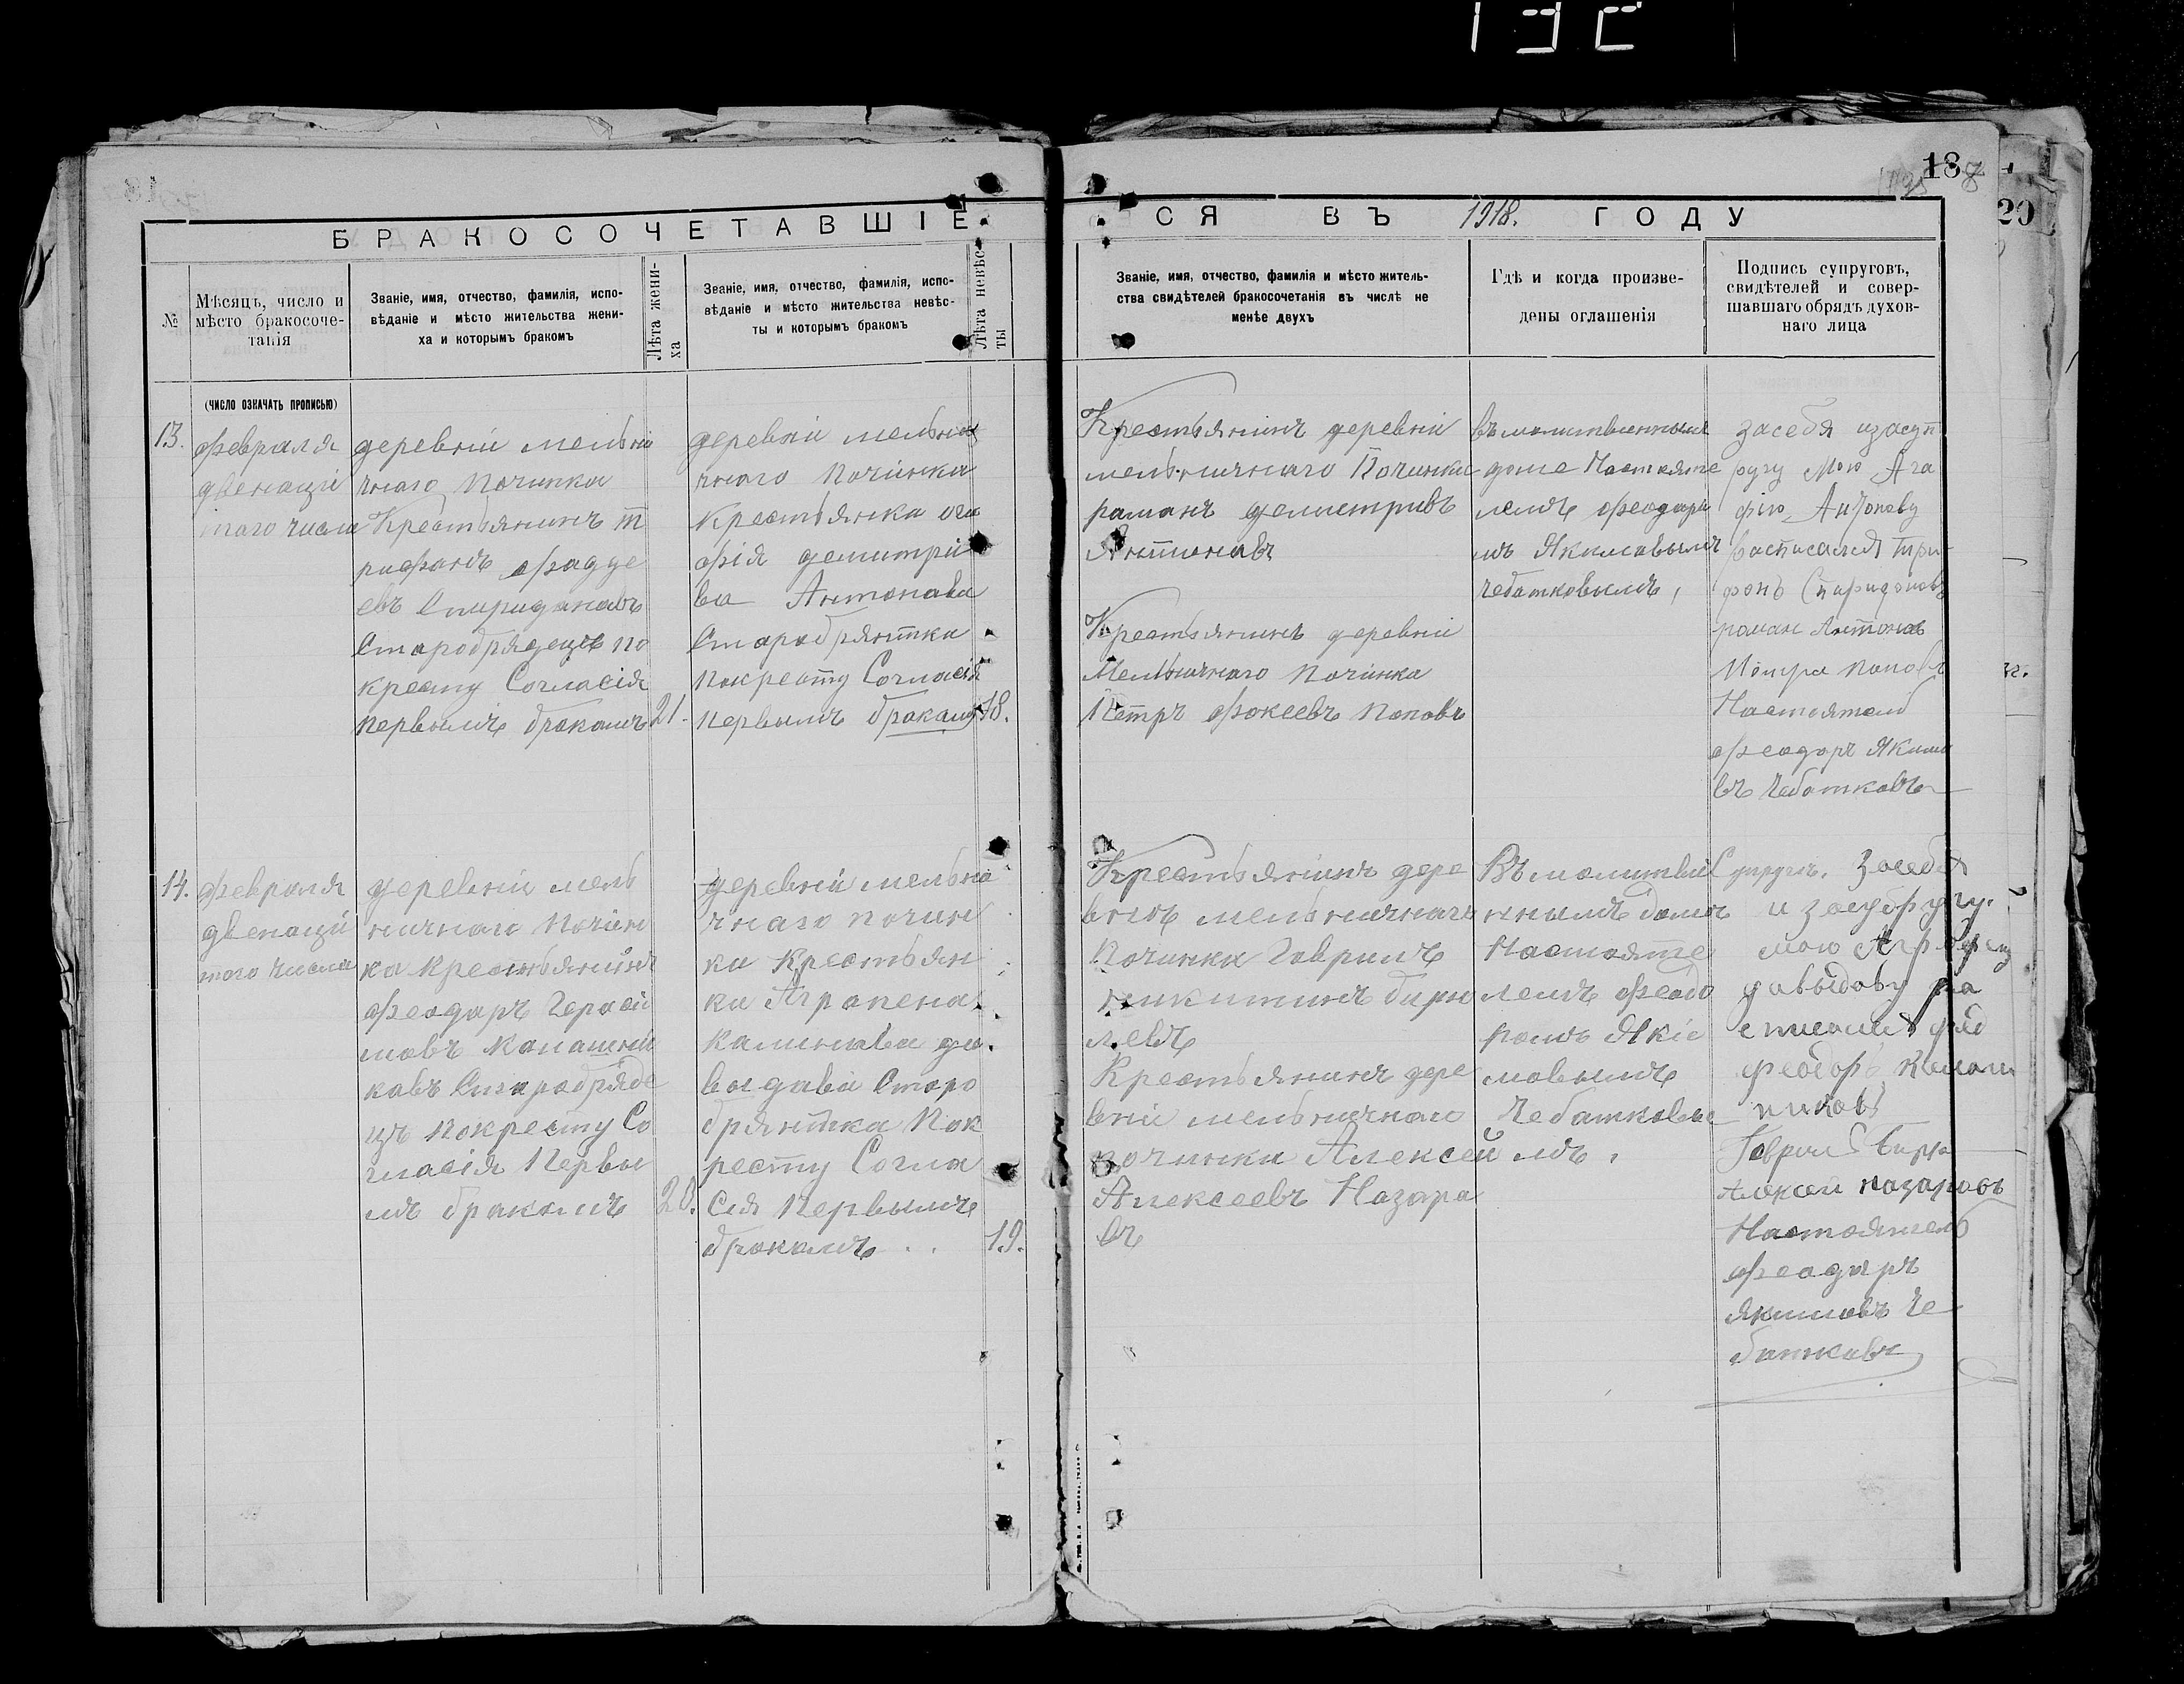 18
20
БРАКОСОЧЕТАВШІЕСЯ ВЪ 1918. ГОДУ
№
Мѣсяцъ, число и
мѣсто бракосоче-
танія
Званіе, имя, отчество, фамилія, испо-
вѣданіе и мѣсто жительства жени-
ха и которымъ бракомъ
Лѣта жени-
ха
Званіе, имя, отчество, фамилія, испо-
вѣданіе и мѣсто жительства невѣс-
ты и которымъ бракомъ
Лѣта невѣс-
ты
Званіе, имя, отчество, фамилія и мѣсто житель-
ства свидѣтелей бракосочетанія въ числѣ не
менѣе двухъ
Гдѣ и когда произве-
дены оглашенія
Подпись супруговъ,
свидѣтелей и совер-
шавшаго обрядъ духов-
наго лица
(ЧИСЛО ОЗНАЧАТЬ ПРОПИСЬЮ)
13.
февраля
двенаци
таго числа
деревни мельни
чнаго Починка
Крестьянинъ т
рифонъ фадде
евъ Спиридонавъ
Старобрядецъ по
кресту Согласія
первымъ бракамъ
21.
деревни мельни
чнаго Починка
Крестьянка ага
фія демитрі
ва Антонава
Старобрятка
покресту Согласія
первымъ бракамъ
18.
Крестьянинъ деревни
мельничнаго Починка
раманъ демитривъ
Антонавъ
Крестьянинъ деревни
Мельничнаго Починка
Петръ фокеевъ Поповъ
въ молитвенномъ
доме Настояте
лемъ феодаро
мъ Якимавымъ
Чебатковымъ,
засебя изасуп
ругу мою Ага
фію Антонову
расписался Три
фонъ Спиридоновъ
роман Антонов
Петра поповъ
Настоятель
феодаръ Якимо
въ Чебатковъ
14.
февраля
двенаци
таго числа
деревни мель
ничнаго Почин
ка Крестьянинъ
феодаръ Гераси
мовъ Калашни
кавъ Старобряде
цъ покресту Со
гласія Первы
мъ бракамъ
20.
деревни мельни
чнаго почин
ка Крестьян
ка Аграпена
Калинава да
выдава Старо
брятка Пок
ресту Согла
сія Первымъ
бракамъ
19.
Крестьянинъ дере
внъ мельничнаго
Починка Гаврилъ
никитинъ бирю
левъ
Крестьянинъ дере
вни мельничнаго
починка Алексей
Алексеевъ Назара
въ
Въ молитве
нномъ доме
Настояте
лемъ феодо
ромъ Якіс
мовымъ
Чебатковы
мъ.
Супругъ. Засебя
и засупругу
мою Аграфену
давыдову ра
списался
феодоръ Калаш
никовъ
Гаврил Бирю
Алексей назаровъ
Настоятель
феадаръ
якимовъ Че
батковъ